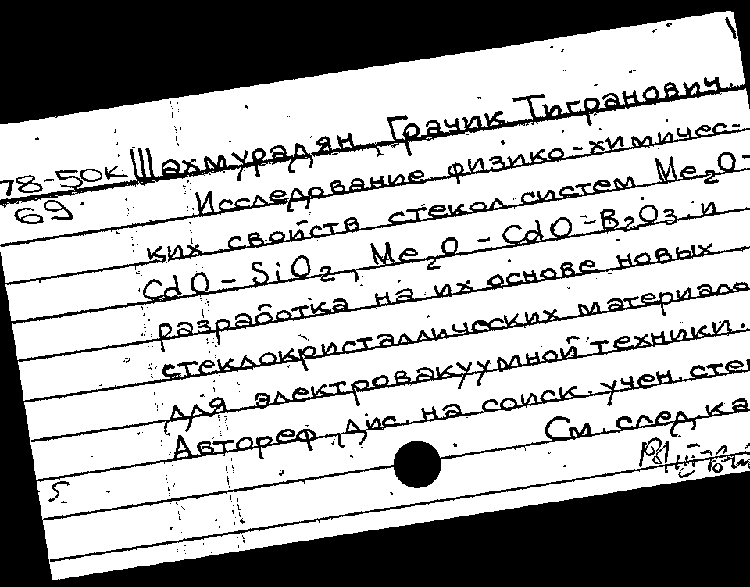 78-50к Шахмурадян, Грачик Тигранович.
69 Исследование физико-химичес-
ких свойств стекол систем Me₂O-
CdO-SiO₂, Me₂O-CdO-B₂O₃ и
разработка на их основе новых
стеклокристаллических материало
для электровакуумной техники.
Автореф. дис. на соиск. учен. сте
См. след. ка
5